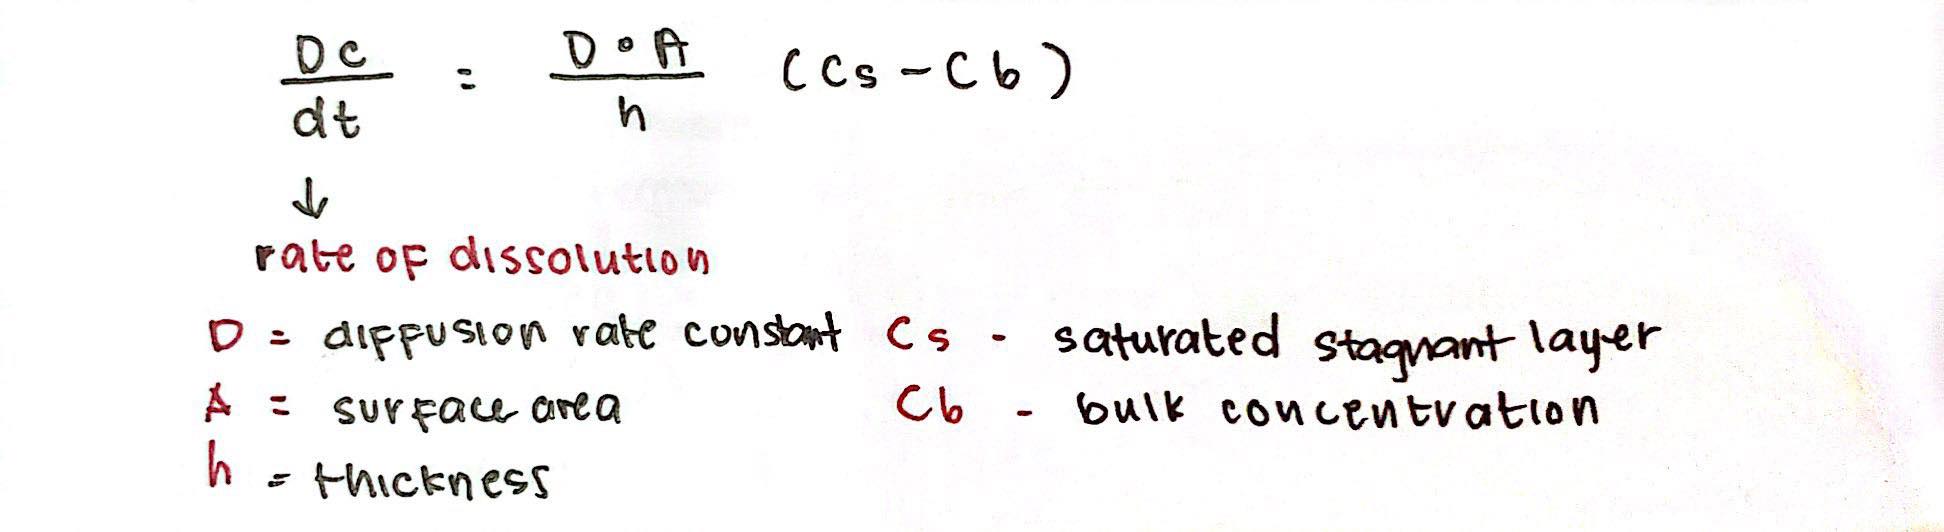 Dc/dt = D∘A/h (Cs - Cb)
↓
rate of dissolution
D = diffusion rate constant Cs - saturated stagnant layer
A = surface area Cb - bulk concentration
h = thickness